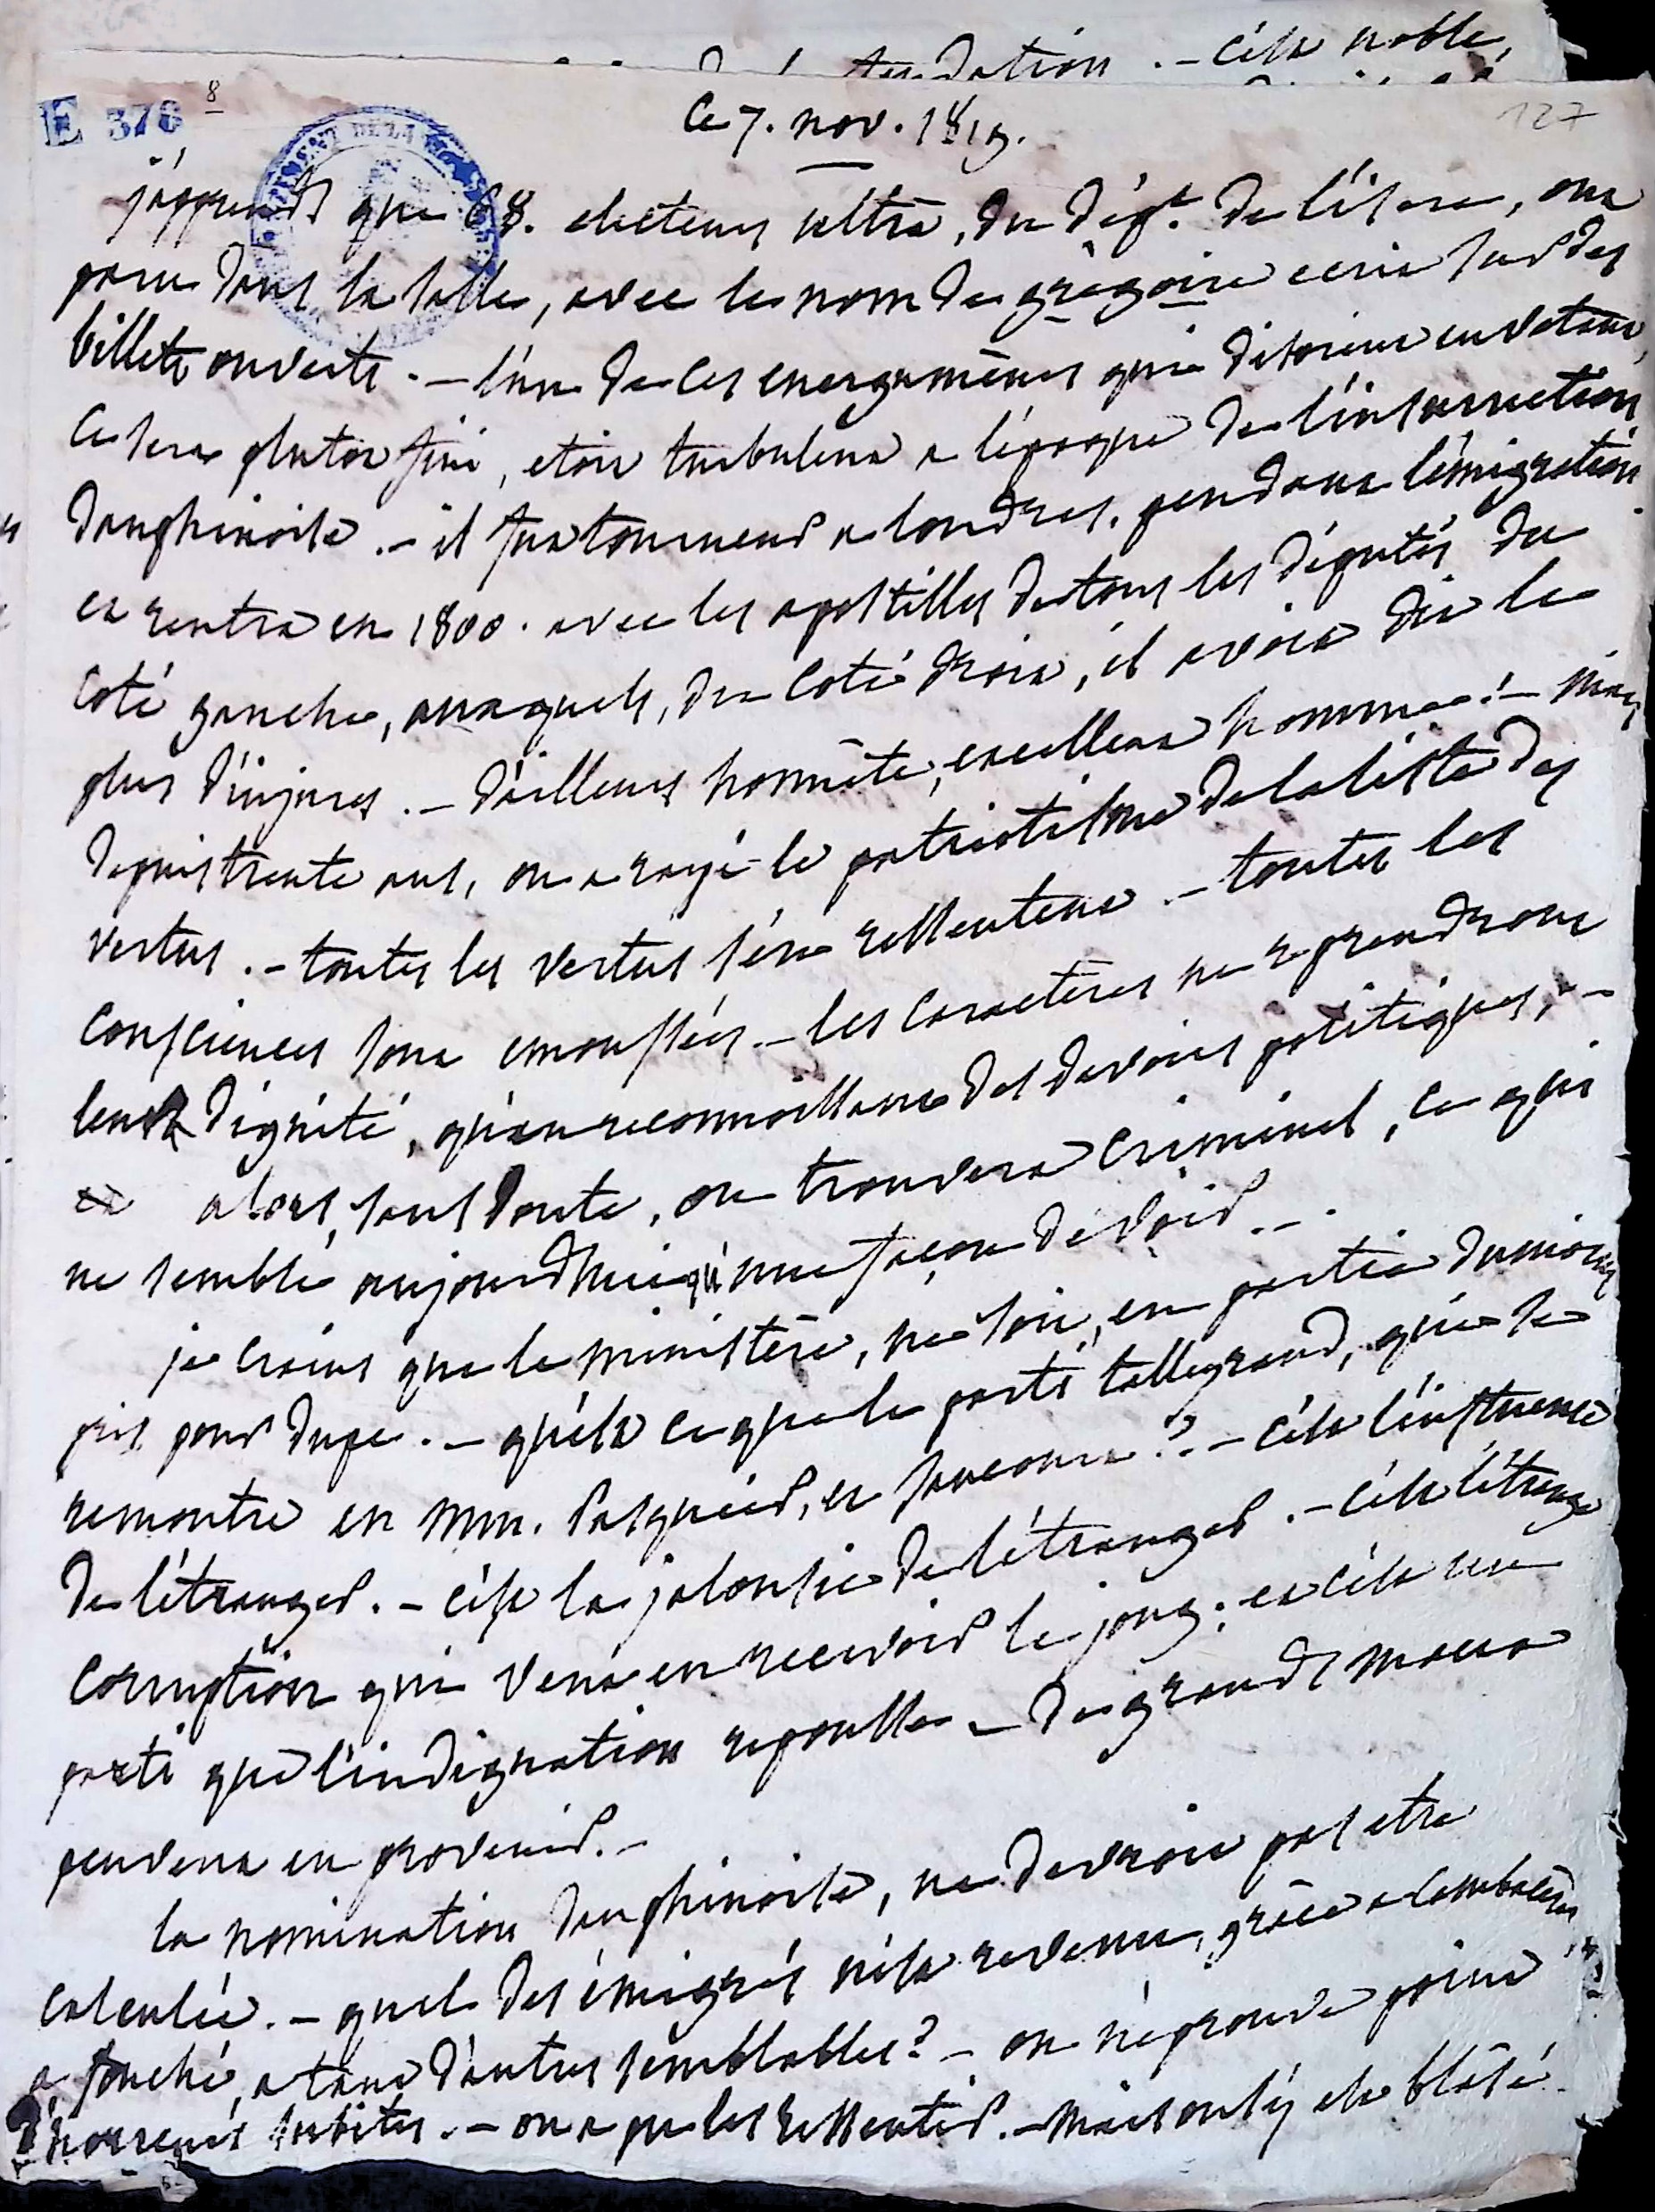 dation. – c'est noble,
E 378 8
127
Ce 7. nov. 1819.
j'apprends que 68. electeurs ultra, du dépt. de l'isere, ont
paru dans la salle, avec le nom de grégoire ecrit sur des
billets ouverts. – l'un de ces energumènes qui disoient en votant,
ce sera plutot fini, etoit turbulent a l'époque de l'insurrection
dauphinoise. – il fut a londres, pendant l'émigration
et rentra en 1800. avec les apostilles de tous les députés du
coté gauche, auxquels, du coté droit, il avoit dit le
plus d'injures. – d'ailleurs honnête, excellent homme! – mais
depuis trente ans, on a rayé le patriotisme de la liste des
vertus. – toutes les vertus s'en ressentent – toutes les
consciences sont emoussées. – les caracteres ne reprendront
leur dignité, qu'en reconnoissant des devoirs politiques, –
et alors, sans doute, on trouvera criminel, ce qui
ne semble aujourd'hui qu'une façon de voir. –
je crains que le ministère, ne soit, en partie du moins
pris pour dupe. – qu'est ce que le parti talleyrand, qui se
remontre en Mm. Pasquier, et jaucourt? – c'est l'influence
de l'étranger. – c'est la jalousie de l'étranger. – c'est l'étrange
corruption qui vient en recevoir le joug; et c'est un
parti que l'indignation repousse – de grands maux
peuvent en provenir. –
la nomination dauphinoise, ne devroit pas etre
calculée. – quel des émigrés n'est revenu, grâce a Cambacérès,
a fouché, a tant d'autres semblables? – on n'éprouve point
d'horreurs subites. – on a pu les ressentir. – mais on s'y est blasé.